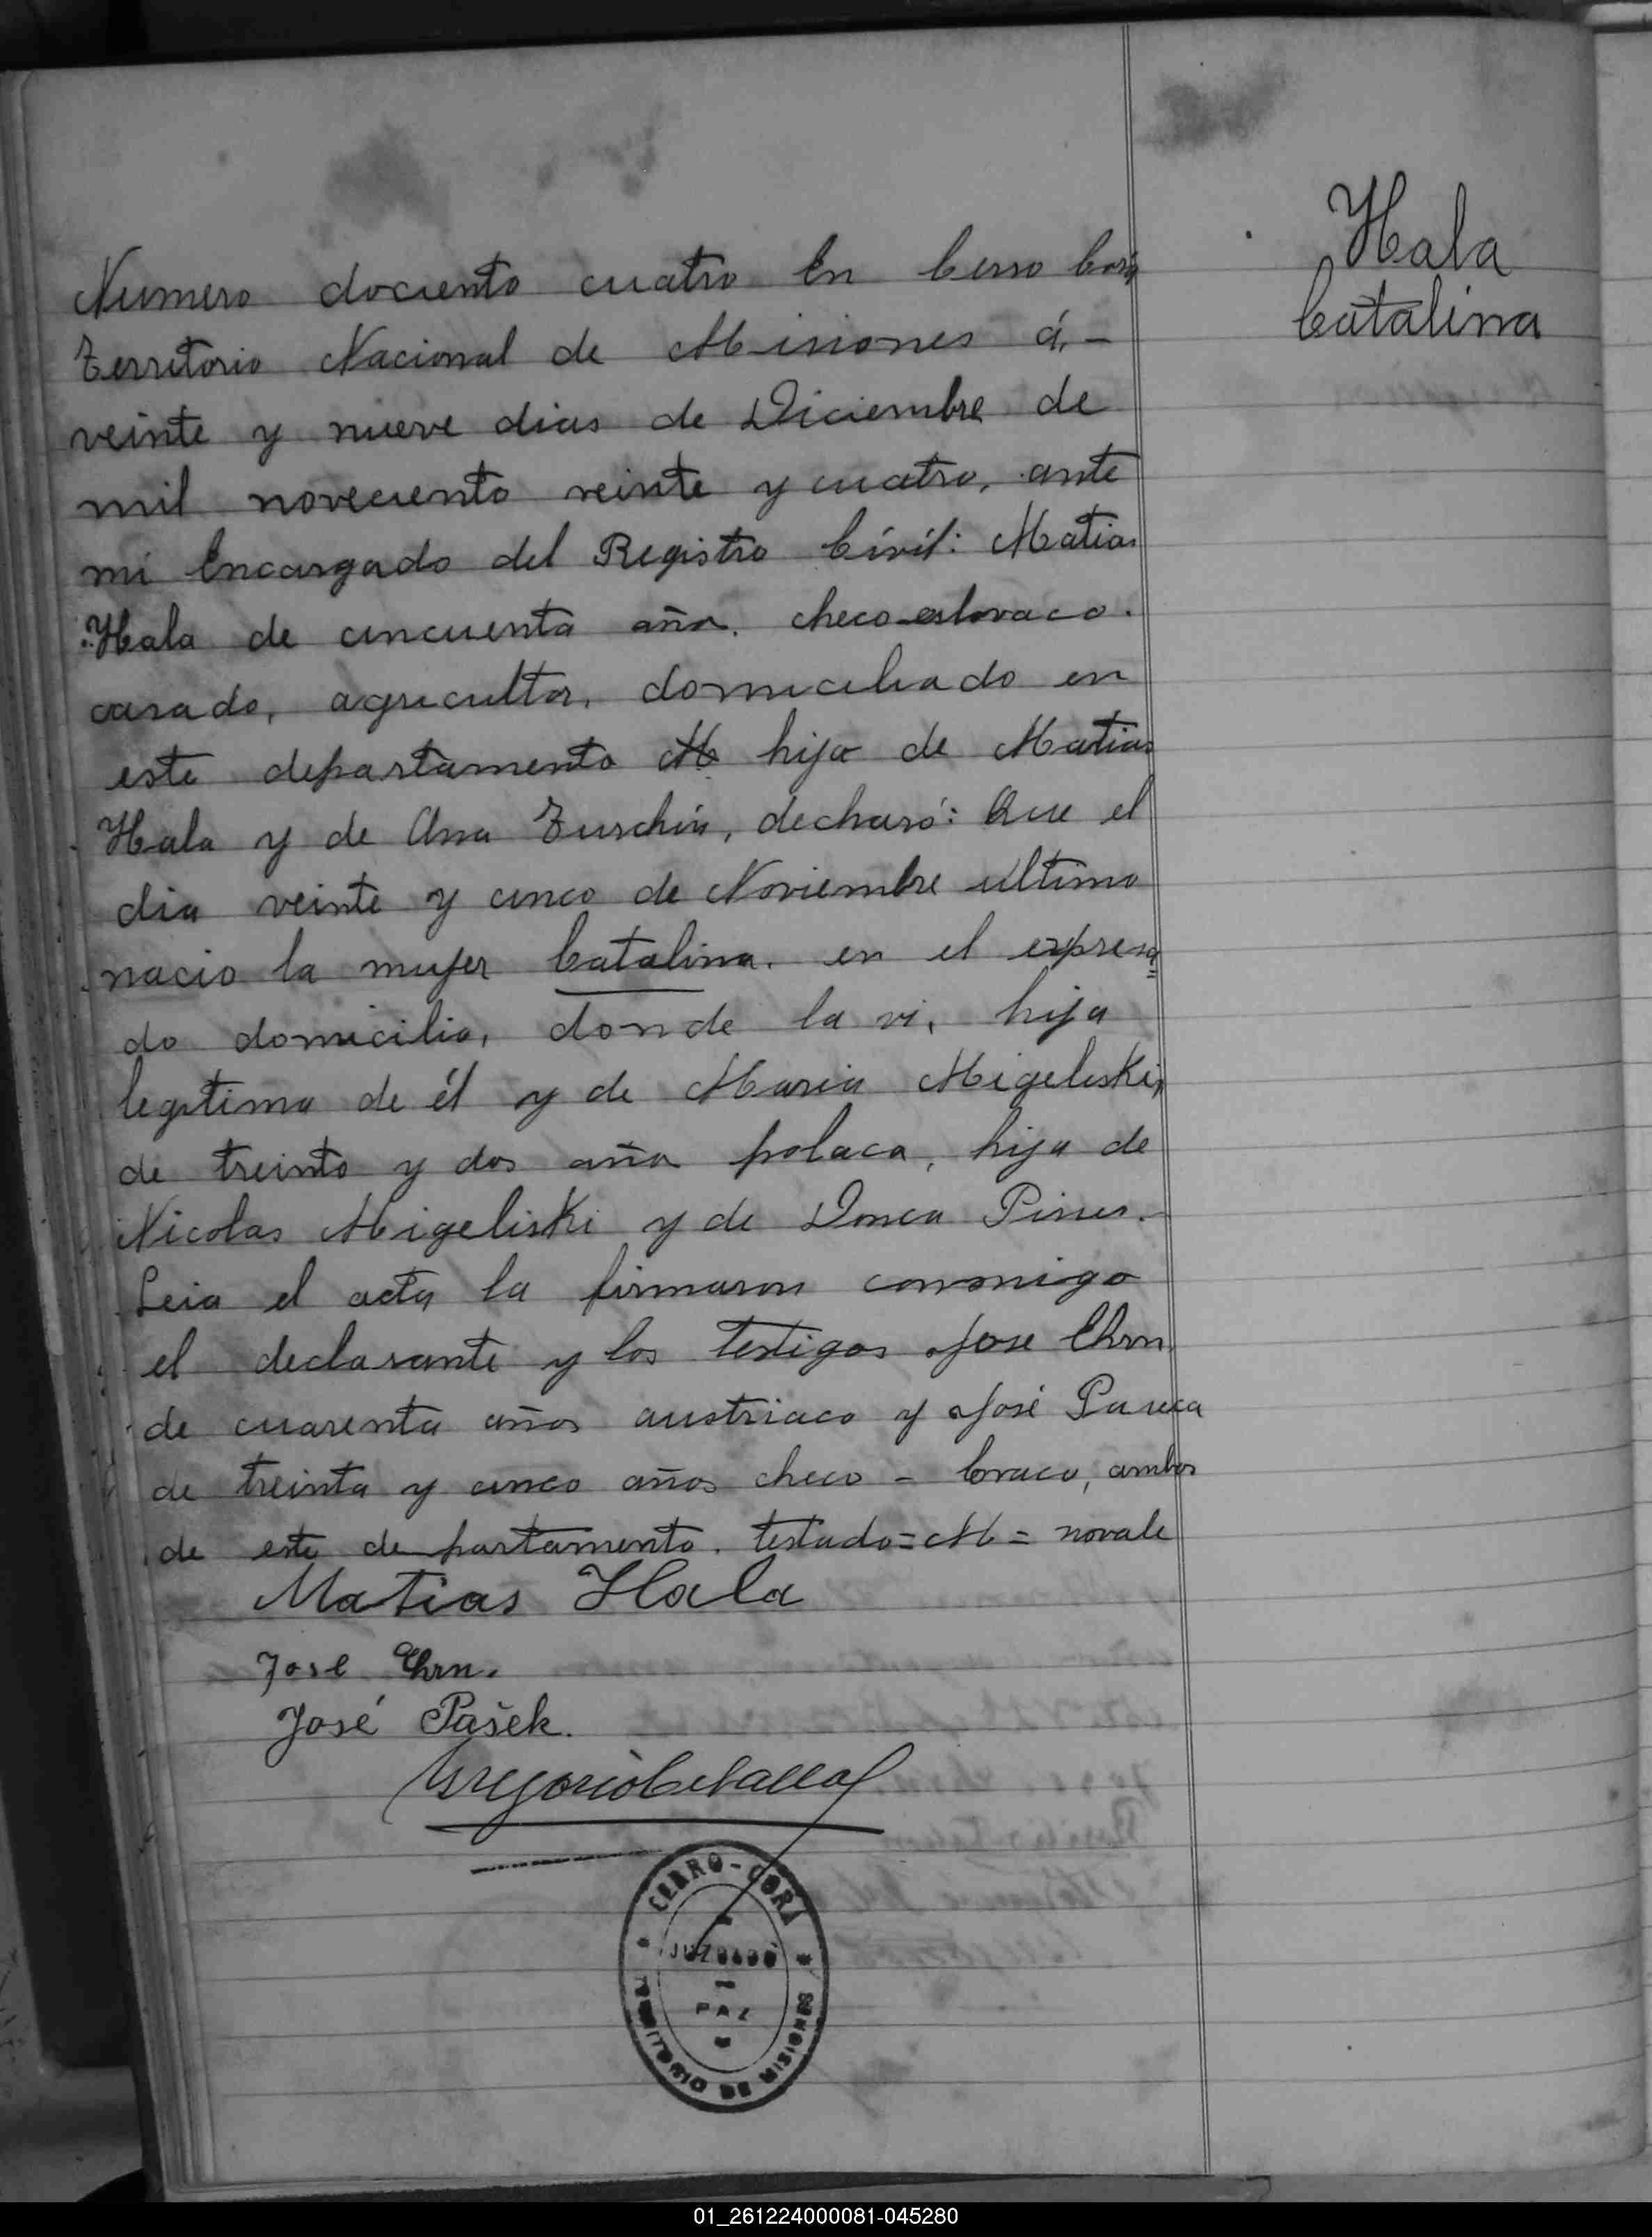 Hala
Catalina
Numero dociento cuatro En Cerro Corá
Territorio Nacional de Misiones á, -
veinte y nueve dias de Diciembre de
mil noveciento veinte y cuatro, ante
mi Encargado del Registro Civil: Matias
Hala de cincuenta año. checoeslovaco.
casado, agricultor, domiciliado en
este departamento M hijo de Matias
Hala y de Ana Turchin, decharó: Que el
dia veinte y cinco de Noviembre ultimo
nacio la mujer Catalina. en el expresa=
do domicilio, donde la vi, hija
legitima de él y de Maria Migeliski,
de treinta y dos año polaca, hija de
Nicolas Migeliski y de
Leia el acta la firmaron conmigo
el declarante y los testigos Jose Chrn
de cuarenta años austriaco y José
de treinta y cinco años checo - lovaco, ambos
de este departamento. testado=M= novale
Matias Hala
José Chrn.
José Pašek.
Gregorio Ceballos
CERRO-CORÁ
JUZGADO
PAZ
TERRITORIO DE MISIONES
01_261224000081-045280